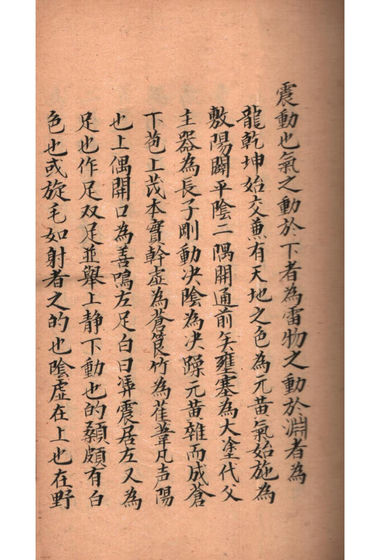 震動也氣之動於下者為雷物之動於淵者為
龍乾坤始交兼有天地之色為元黃氣始施為
敷陽闢平陰二隅開通前矣壅塞為大塗代父
主器為長子剛動决陰為决躁元黃雜而成蒼
下苞上茂本實幹虛為蒼筤竹為萑葦凡声陽
也上偶開口為善鳴左足白曰馵震居左又為
足也作足双足並舉上静下動也的顙頗有白
色也或旋毛如射者之的也陰虛在上也在野